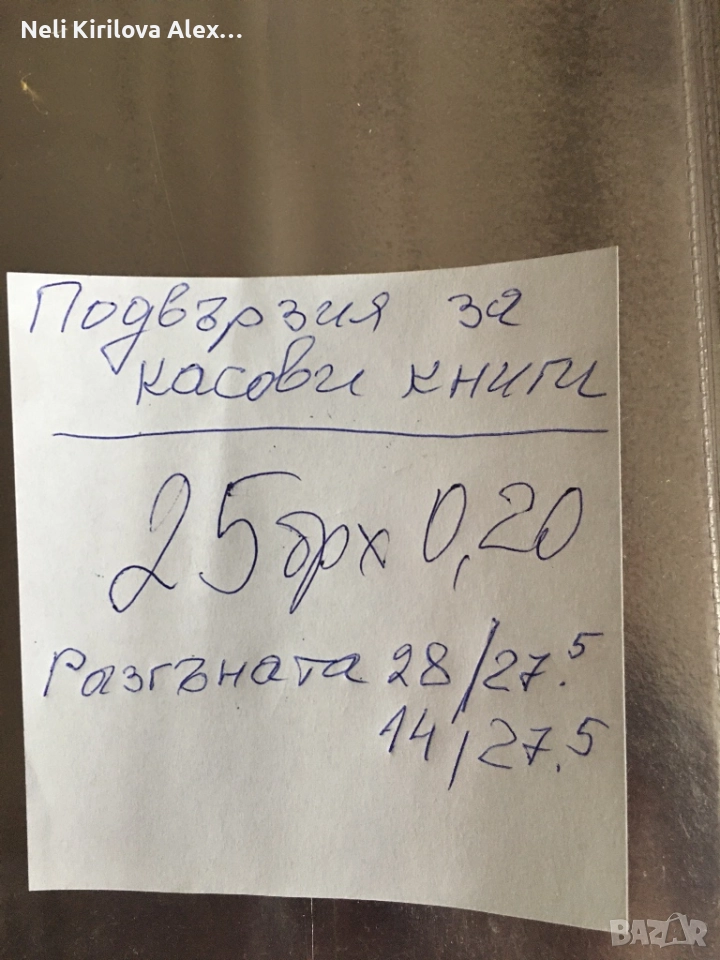 Neli Kirilova Alex...
Подвързия за
касови книги
25 бр х 0,20
Разгъната 28/27.5
14/27.5
BAZAR